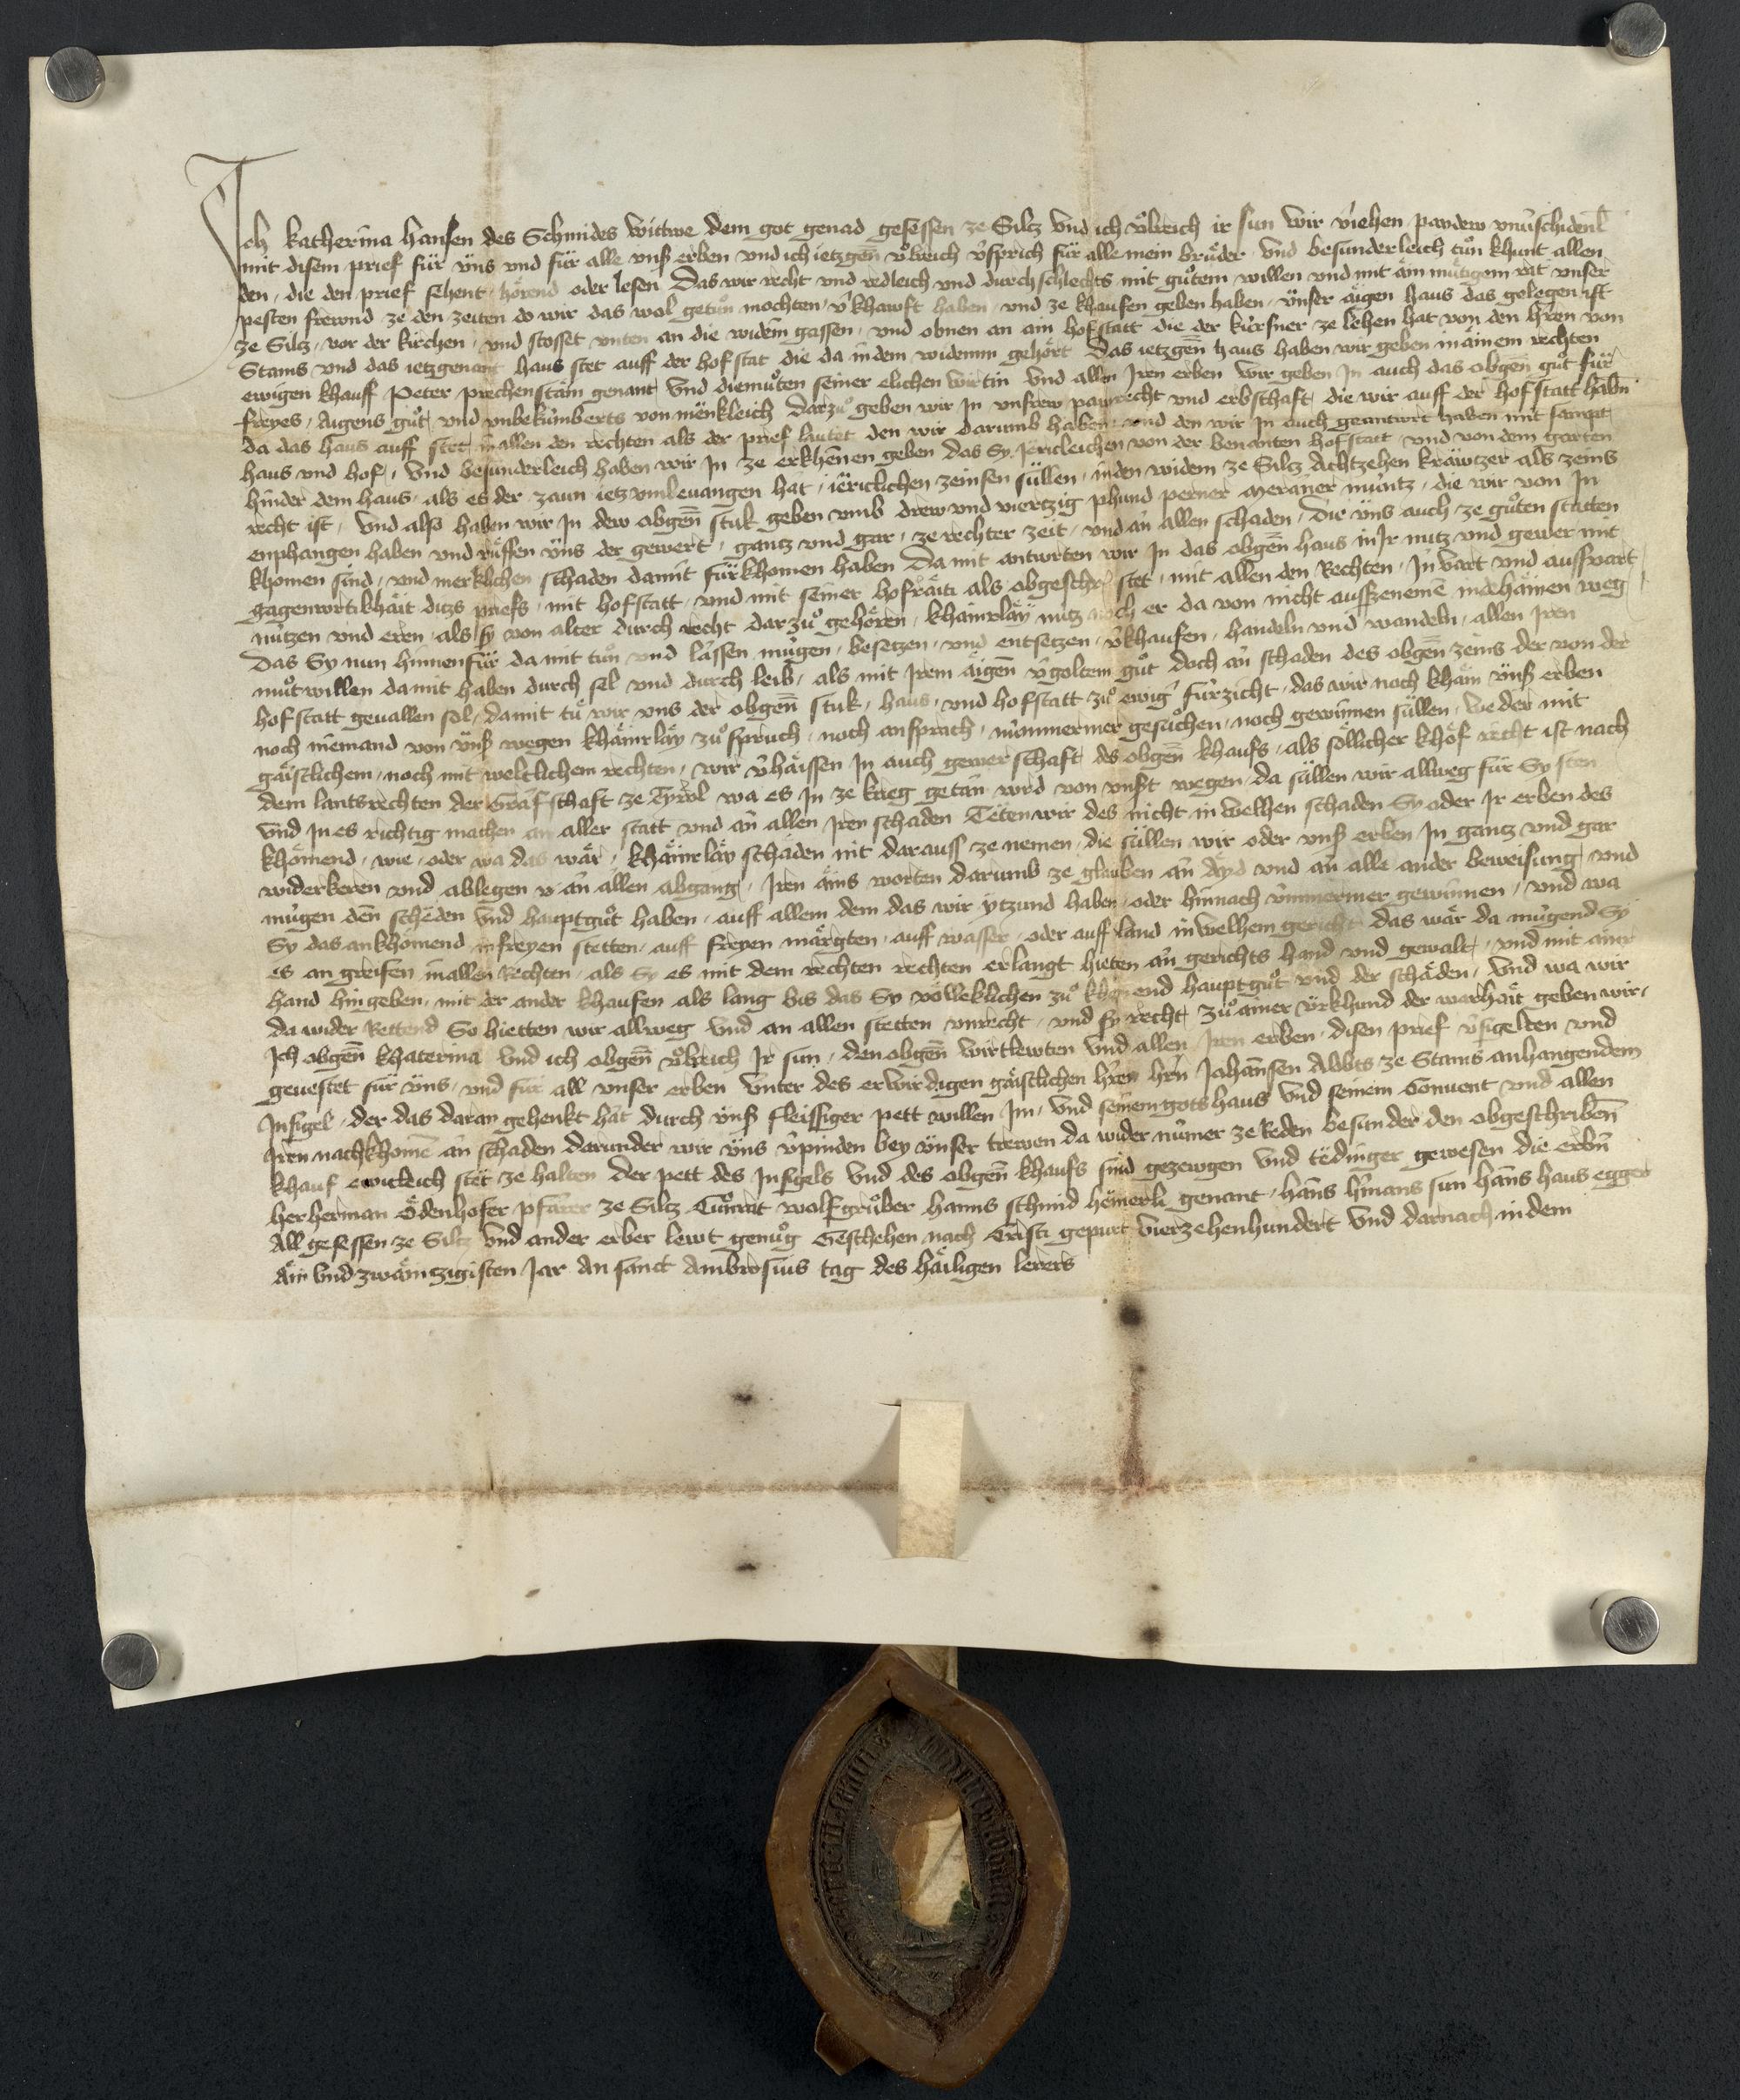 Ich katherina hansen des Schmides witwe dem got genad gesessen ze Silcz Vnd ich vͦlreich ir sun wir v̾iehen paydew vnu̾schidenl̄
mit disem prief fúr v̈ns vnd fúr alle vnß erben vnd ich ietzgen̄ vͦlreich v̾sprich fúr alle mein brúder vnd besunderleich tuͦn khunt allen
den, die den prief sehent hörend oder lesen Das wir recht vnd redleich vnd durchschlechts mit guͦtem willen vnd mit ainmútigem rat vnser
pesten frewnd ze den zeiten do wir das wol getuͦn mochten v̾khawft haben vnd ze khaufen geben haben v̈nser aigen haus das gelegen ist
ze Silcz vor der kirchen vnd stosset vnten an die widem gassen, vnd obnen an ain hofstatt die der kúrsner ze lehen hat von den hr̄en von
Stams vnd das ietzgenant haus stet auff der hofstat die da in dem widemm gehört Das ietzgen̄ haus haben wir geben in ainem rechten
ewigen khauff Peter prechenstain genant Vnd diemuͦten seiner elichen wirtin Vnd allen Iren erben wir geben In auch das obgen̄ guͦt fúr
freyes, Aygens guͦt, vnd vnbekúmberts von mënkleich Darzuͦ geben wir In vnsrew pawrecht vnd erbschaft die wir auff der hofstatt habn̄
da das haus auff stet in allen den rechten als der prief lautet den wir darumb haben vnd den wir In auch geantwrt haben mit sampt
haus vnd hof, Vnd besunderleich haben wir In ze erkhennen geben das Sy Iericleichen von der benanten hofstatt vnd von dem garten
hinder dem haus, als es der zaun ietz vmbevangen hat, iëriclichen zeinsen súllen, in den widem ze Silcz Achtzehen kräwtzer als zeins
recht ist, Vnd also haben wir In dew obgen̄ stuk geben vmb drew vnd viertzig phund perner Meraner múntz, die wir von In
enphangen haben vnd rúffen v̈ns der gewert, gantz vnd gar, ze rechter zeit, vnd an allen schaden, Die v̈ns auch ze guͦten statten
khomen sind, vnd merklichen schaden damit fúrkhomen haben Da mit antwrten wir In das obgen̄ haus in Ir nutz vnd gewer mit
gagenwrtikhäit ditzs priefs, mit hofstatt, vnd mit seiner hofräiti als obgeschr̄ stet, mit allen den Rechten, Invart vnd aussvart
nützen vnd eren, als sy von alter durch recht dar zuͦ gehören, khainrlay nutz noch er da von nicht ausszenemē in dehäinen weg
Das Sy nun hinnenfúr da mit tuͦn vnd lassen múgen, besetzen, vnd entsetzen, v̾khaufen, handeln vnd wandeln, allen Iren
muͦtwillen damit haben durch sel vnd durch leib, als mit Irem aigen̄ v̾goltem guͦt doch an schaden des obgen̄ zeins der von der
hofstatt geuallen sol, damit tuͦ wir vns der obgen̄ stuk, haus, vnd hofstatt zuͦ ewig̾ fúrzicht, das wir noch khain v̈nß erben
noch niemand von v̈nß wegen khäinrläy zuͦspruch, noch ansprach, nimmermer gesuͦchen, noch gewinnen súllen, weder mit
gäistlichem, noch mit weltlichem rechten, wir v̾häissen In auch gewerschaft des obgen̄ khaufs, als söllicher khöf recht ist nach
dem lantsrechten der Grafschaft ze Tyrol wa es In ze krieg getan wrd von vnßt wegen, da súllen wir allweg fúr Sy sten
vnd In es richtig machen an aller statt vnd an allen Iren schaden Teten wir des nicht in welhen schaden Sy oder Ir erben des
khömend, wie, oder wa das wär, khäinrläy schäden nit darauss ze nemen, die súllen wir oder vnß erben In gantz vnd gar
widerkeren vnd ablegen an allen abgang, Iren ains worten darumb ze glauben an Ayd vnd an alle ander beweisung, vnd
múgen den̄ schëden vnd hauptguͦt haben, auff allem dem das wir ytzund haben, oder hinnach v̈mmermer gewinnen, vnd wa
Sy das ankhomend in freyen stetten, auff freyen märgten, auff wasser, oder auff land in welhem gericht das wär da múgend Sy
es an greifen in allen Rechten, als Sy es mit dem rechten rechten erlangt hieten an gerichts hand vnd gewalt, vnd mit ainr
hand hin geben, mit der ander khaufen als lang bis das Sy völleklichen zuͦ khomend hauptguͦt vnd der schäden, Vnd wa wir
da wider Rettend So hietten wir allweg Vnd an allen stetten vnrecht, vnd sy recht Zuͦ ainer v̈rkhund der warhäit geben wir,
Ich obgen̄ khaterina Vnd ich obgen̄ vͦlreich Ir sun, den obgen̄ wirtlewten Vnd allen Iren erben, disen prief v̾sigelten vnd
geuestet fúr v̈ns, vnd fúr all vnser erben Vnter des erwirdigen gäistlichen hr̄en hr̄n Johannsen Abbts ze Stams anhangendem
Insigel, der das daran gehenkt hat durch v̈nß fleissiger pett willen Im, Vnd seinem gotshaus Vnd seinem Conuent vnd allen
Iren nachkhomē an schaden darunder wir v̈ns v̾pinden bey v̈nser trewen da wider nimer ze Reden besunder den obgeschriben̄
khauf ewicleich stët ze halten Der pett des Insigels Vnd des obgen̄ khaufs sind gezewgen Vnd tëdinger gewesen die erbn̄
her herman Ödenhofer pfarrer ze Silcz Cuͦnrat wolfgruͦber hanns schmid hëmerli genant, hanns h̾mans sun hanns haus egger
All gesessen ze Silcz Vnd ander erber lewt genuͦg Geschehen nach Cristi gepurt Vierzehenhundert Vnd darnach in dem
Ain Vnd zwäinzigisten Jar An sanct Ambrosius tag des häiligen lerers